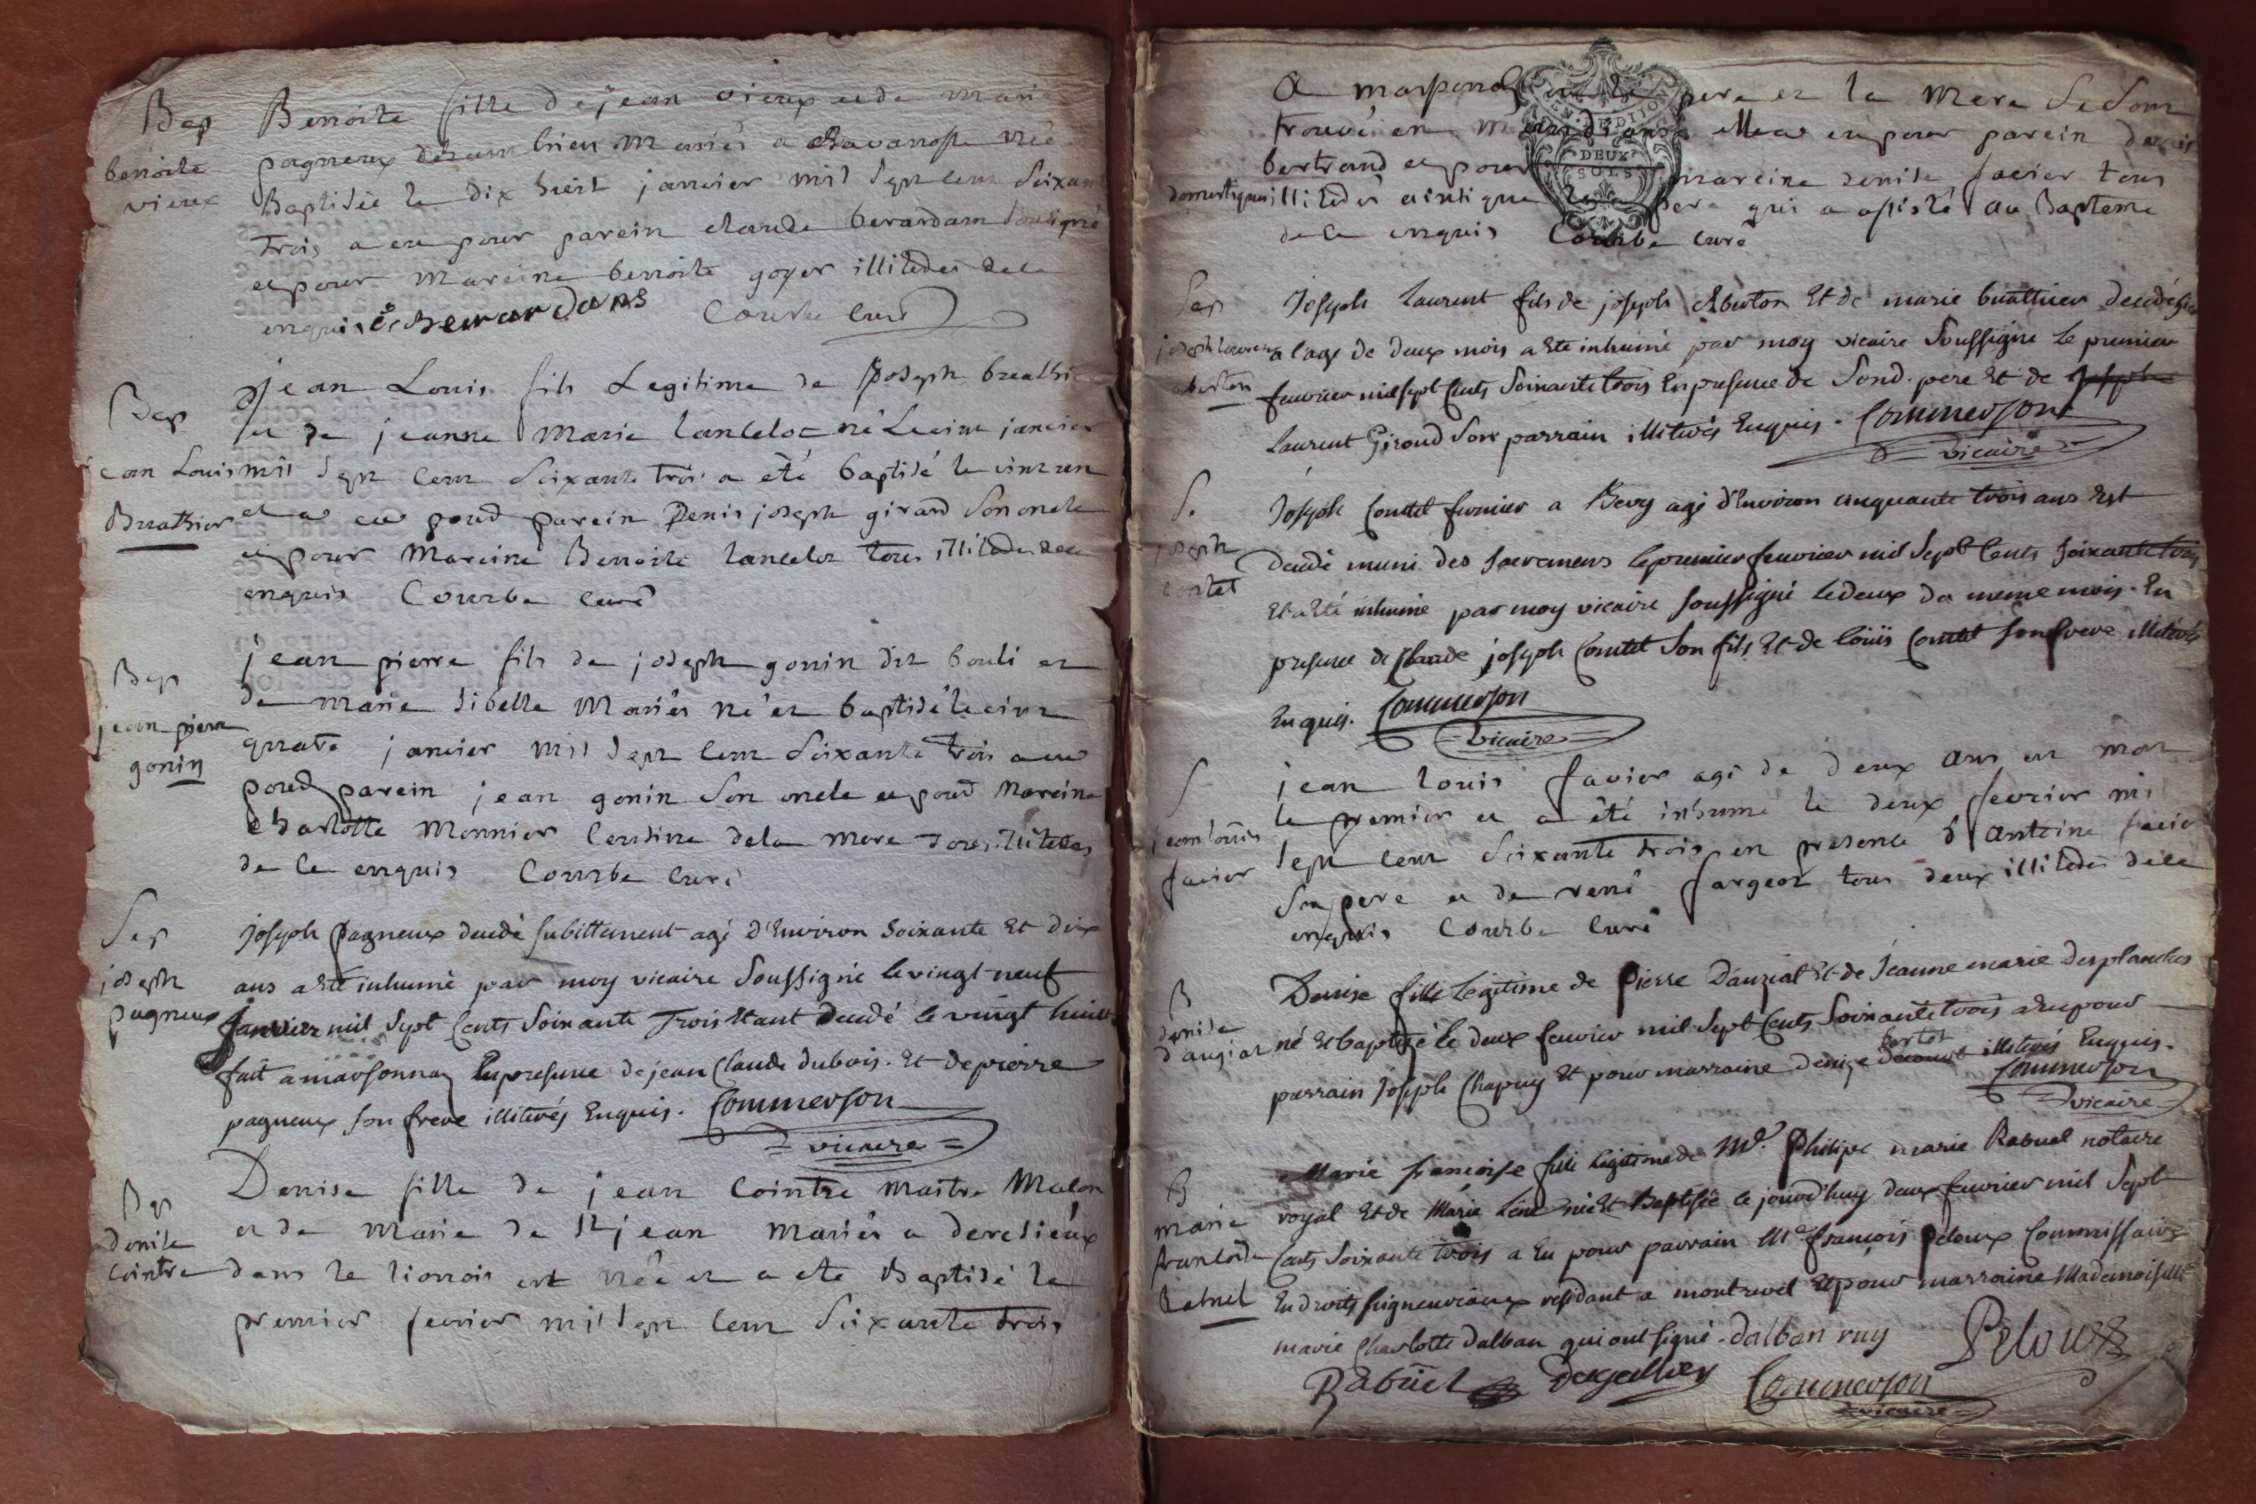 Bap
benoite
vieux
Benoite fille de jean vieux et de Marie
pagneux mariés a Chavanosse née
Baptisée le dix huit janvier mil sept cent soixante
trois a eu pour parein claude berardam soussigné
et pour Mareine benoite goyer illiterés de ce
enquis Courbe curé
Bap
jean Louis
Buathier
jean Louis fils Legitime de joseph buathier
et de jeanne Marie lancelot né Le vint janvier
mil sept cent soixante trois a été baptisé le vint un
et a eu pour parein Denis joseph girard son oncle
et pour Mareine Benoite lancelot tous illiterés de ce
enquis Courbe curé
Bap
jean pierre
gonin
jean pierre fils de joseph gonin dit bouli et
de marie sibelle Mariés né et baptisé le vint
quatre janvier mil sept cent soixante trois a eu
pour parein jean gonin son oncle et pour Mareine
charlotte Monnier cousine de la mere tous illiteres
de ce enquis Courbe curé
Sep
joseph
pagneux
joseph pagneux decedé subittement agé d'Environ soixante Et dix
ans a Eté inhumé par moy vicaire Soussigné le vingt neuf
janvier mil sept Cents Soixante Trois Etant decedé le vingt huit
fait a marsonnay En presence de jean Claude dubois. Et de pierre
pagneux son frere illiterés Enquis. Commerson
vicaire
Bap
denise
Cointre
Denise fille de jean Cointre maitre Malon
et de Marie de St jean mariés a
dans le lionois est née et a eté Baptisé le
premier fevrier mil sept cent soixante trois
DEUX
SOLS
a pere et la Mere se sont
trouvé en elle a eu pour parein denis
bertrand et pour mareine denise favier tous
domestiques illiterés ainsi que le pere qui a assisté au Bapteme
de ce enquis Courbe curé
Sep
joseph laurent
Joseph laurent fils de joseph et de marie buathier decedé hier
a l'age de deux mois a eté inhumé par moy vicaire Soussigné le premier
fevrier mil sept Cents Soixante trois En presence de Sond. pere Et de
laurent Giroud son parrain illiterés Enquis. Commerson
vicaire
S.
joseph
contet
Joseph Contet fermier a agé d'Environ cinquante trois ans Est
decedé muni des sacremens le premier fevrier mil Sept Cents soixante trois
Et a Eté inhumé par moy vicaire soussigné le deux du meme mois. En
presence de Claude joseph Contet Son fils Et de loüis Contet son frere illiterés
Enquis. Commerson
vicaire
S
jean loüis
favier
jean louis favier agé de deux ans est mort
le premier et a été inhumé le deux fevrier mil
sept cent soixante trois en presence d'Antoine favier
son pere et de rené fargeot tous deux illiterés de ce
enquis Courbe curé
B
denise
d'auziat
Denise fille Legitime de Pierre Dauziat Et de Jeanne marie desplanches
né Et baptisé le deux fevrier mil Sept Cents Soixante trois a Eu pour
parrain Joseph Chapuy Et pour marraine denize bertet illiterés Enquis.
Commerson
vicaire
B
marie
francoise
Rabuel
Marie francoise fille legitime de Me. Philipe marie Rabuel notaire
royal Et de Marie née Et baptisée ce jourd'huy deux fevrier mil Sept
Cents Soixante trois a Eu pour parrain Me francois peloux Commissaire
En droits seigneuriaux residant a montrevel Et pour marraine Mademoiselle
marie Charlotte dalban qui ont signé. dalban ruy Peloux
Rabüel Commerson
vicaire